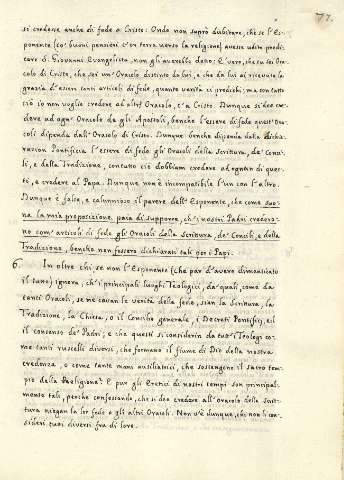 77.
si credesse anche di fede a Cristo. Onde non saprò dubitare, che se l'Es-
ponente (co' buoni pensieri c'or terra verso la religione) avesse udito predi-
care di Giovanni Evangelista, non gli avrebbe detto: È vero, che tu sei Ora-
colo di Cristo, che sei un' Oracolo distinto da lui, e che da lui ai ricevuto la
grazia d'esser tanti articoli di fede, quante verità ci predichi: ma con tutto
ciò io non voglio credere ad altr' Oracolo, c' a Cristo. Dunque si deo cre-
dere ad ogn' Oracolo de gli Apostoli, benche l'essere di fede quest' Ora-
coli dipenda dall' Oracolo di Cristo. Dunque benche dipenda dalla dichia-
razion Pontificia l'essere di fede gli Oracoli della Scrittura, de' Conci-
li, e della Tradizione, contutto ciò dobbiam credere ad ognun di ques-
ti, e credere al Papa. Dunque non è incompatibile l'un con l'altro.
Dunque è falso, e calunnioso il parere dell' Esponente, che come suo-
na la mia proposizione, paia di supporre, ch'i nostri Padri credero-
no com' articoli di fede gli Oracoli della Scrittura, de' Concili, e della
Tradizione, benche non fossero dichiarati tali per i Papi.
6. In oltre chi se non l'Esponente (che par d'avere dimenticato
il tutto) ignora, ch'i principali luoghi Teologici, da' quali, come da
tanti Oracoli, se ne cavan le verità della fede, sian la Scrittura, la
Tradizione, la Chiesa, o il Concilio generale, i Decreti Pontifizj, ed
il consenso de' Padri; e che questi si considerin da tut' i Teologi co-
me tanti ruscelli diversi, che formano il fiume di Dio della nostra
credenza, o come tante mani ausiliatrici, che sostengono il sacro tem-
pio della Religione? E pur gli Eretici di nostri tempi son principal-
mento tali, perche confessando, che si deo credere all' Oracolo della Scrit-
tura niegan la lor fede a gli altri Oracoli. Non v'è dunque, chi non li con-
sideri tutti diversi fra di loro.